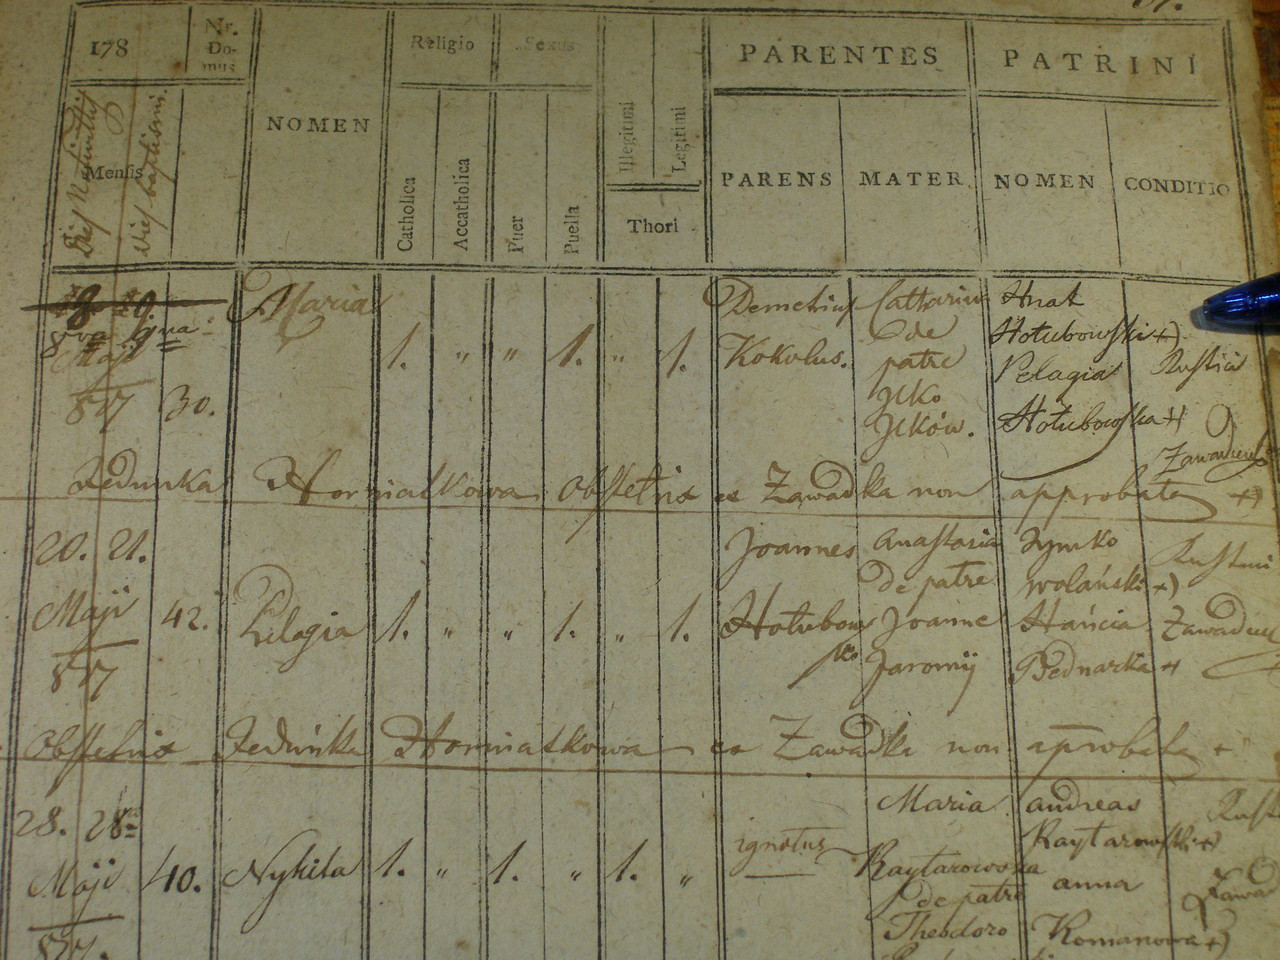 178
Nr. Domus
NOMEN
Religio
Sexus
PARENTES
PATRINI
Dies Nativitatis
Mensis
Dies baptismi.
Catholica
Accatholica
Puer
Puella
Illegitimi
Legitimi
Thori
PARENS
MATER
NOMEN
CONDITIO
8va 9na
Maji
817
30.
Maria
1. „ „ 1. „ 1.
Demetrius
Kokulus.
Catharina
de
patre
Ilko
Ilków.
Hnat
Hołubowski +)
Pelagia
Hołubowska +)
Rustici
Fedunka Horniatkowa obstetrix ex Zawadka non approbata +)
20. 21.
Maji
817
42.
Pelagia
1. „ „ 1. „ 1.
Joannes
Hołubowski
Anastasia
de patre
Joanne
Jaromij
Symko
wolański +)
Hańcia
Bednarka +
obstetrix Feduńka Horniatkowa ex Zawadka non aprobata +
28. 28
Maji
817.
40.
Nykita
1. „ 1. „ 1. „
ignotus
Maria
Raytarowska
de patre
Theodoro
andreas
Raytarowski +)
anna
Romanowa +)